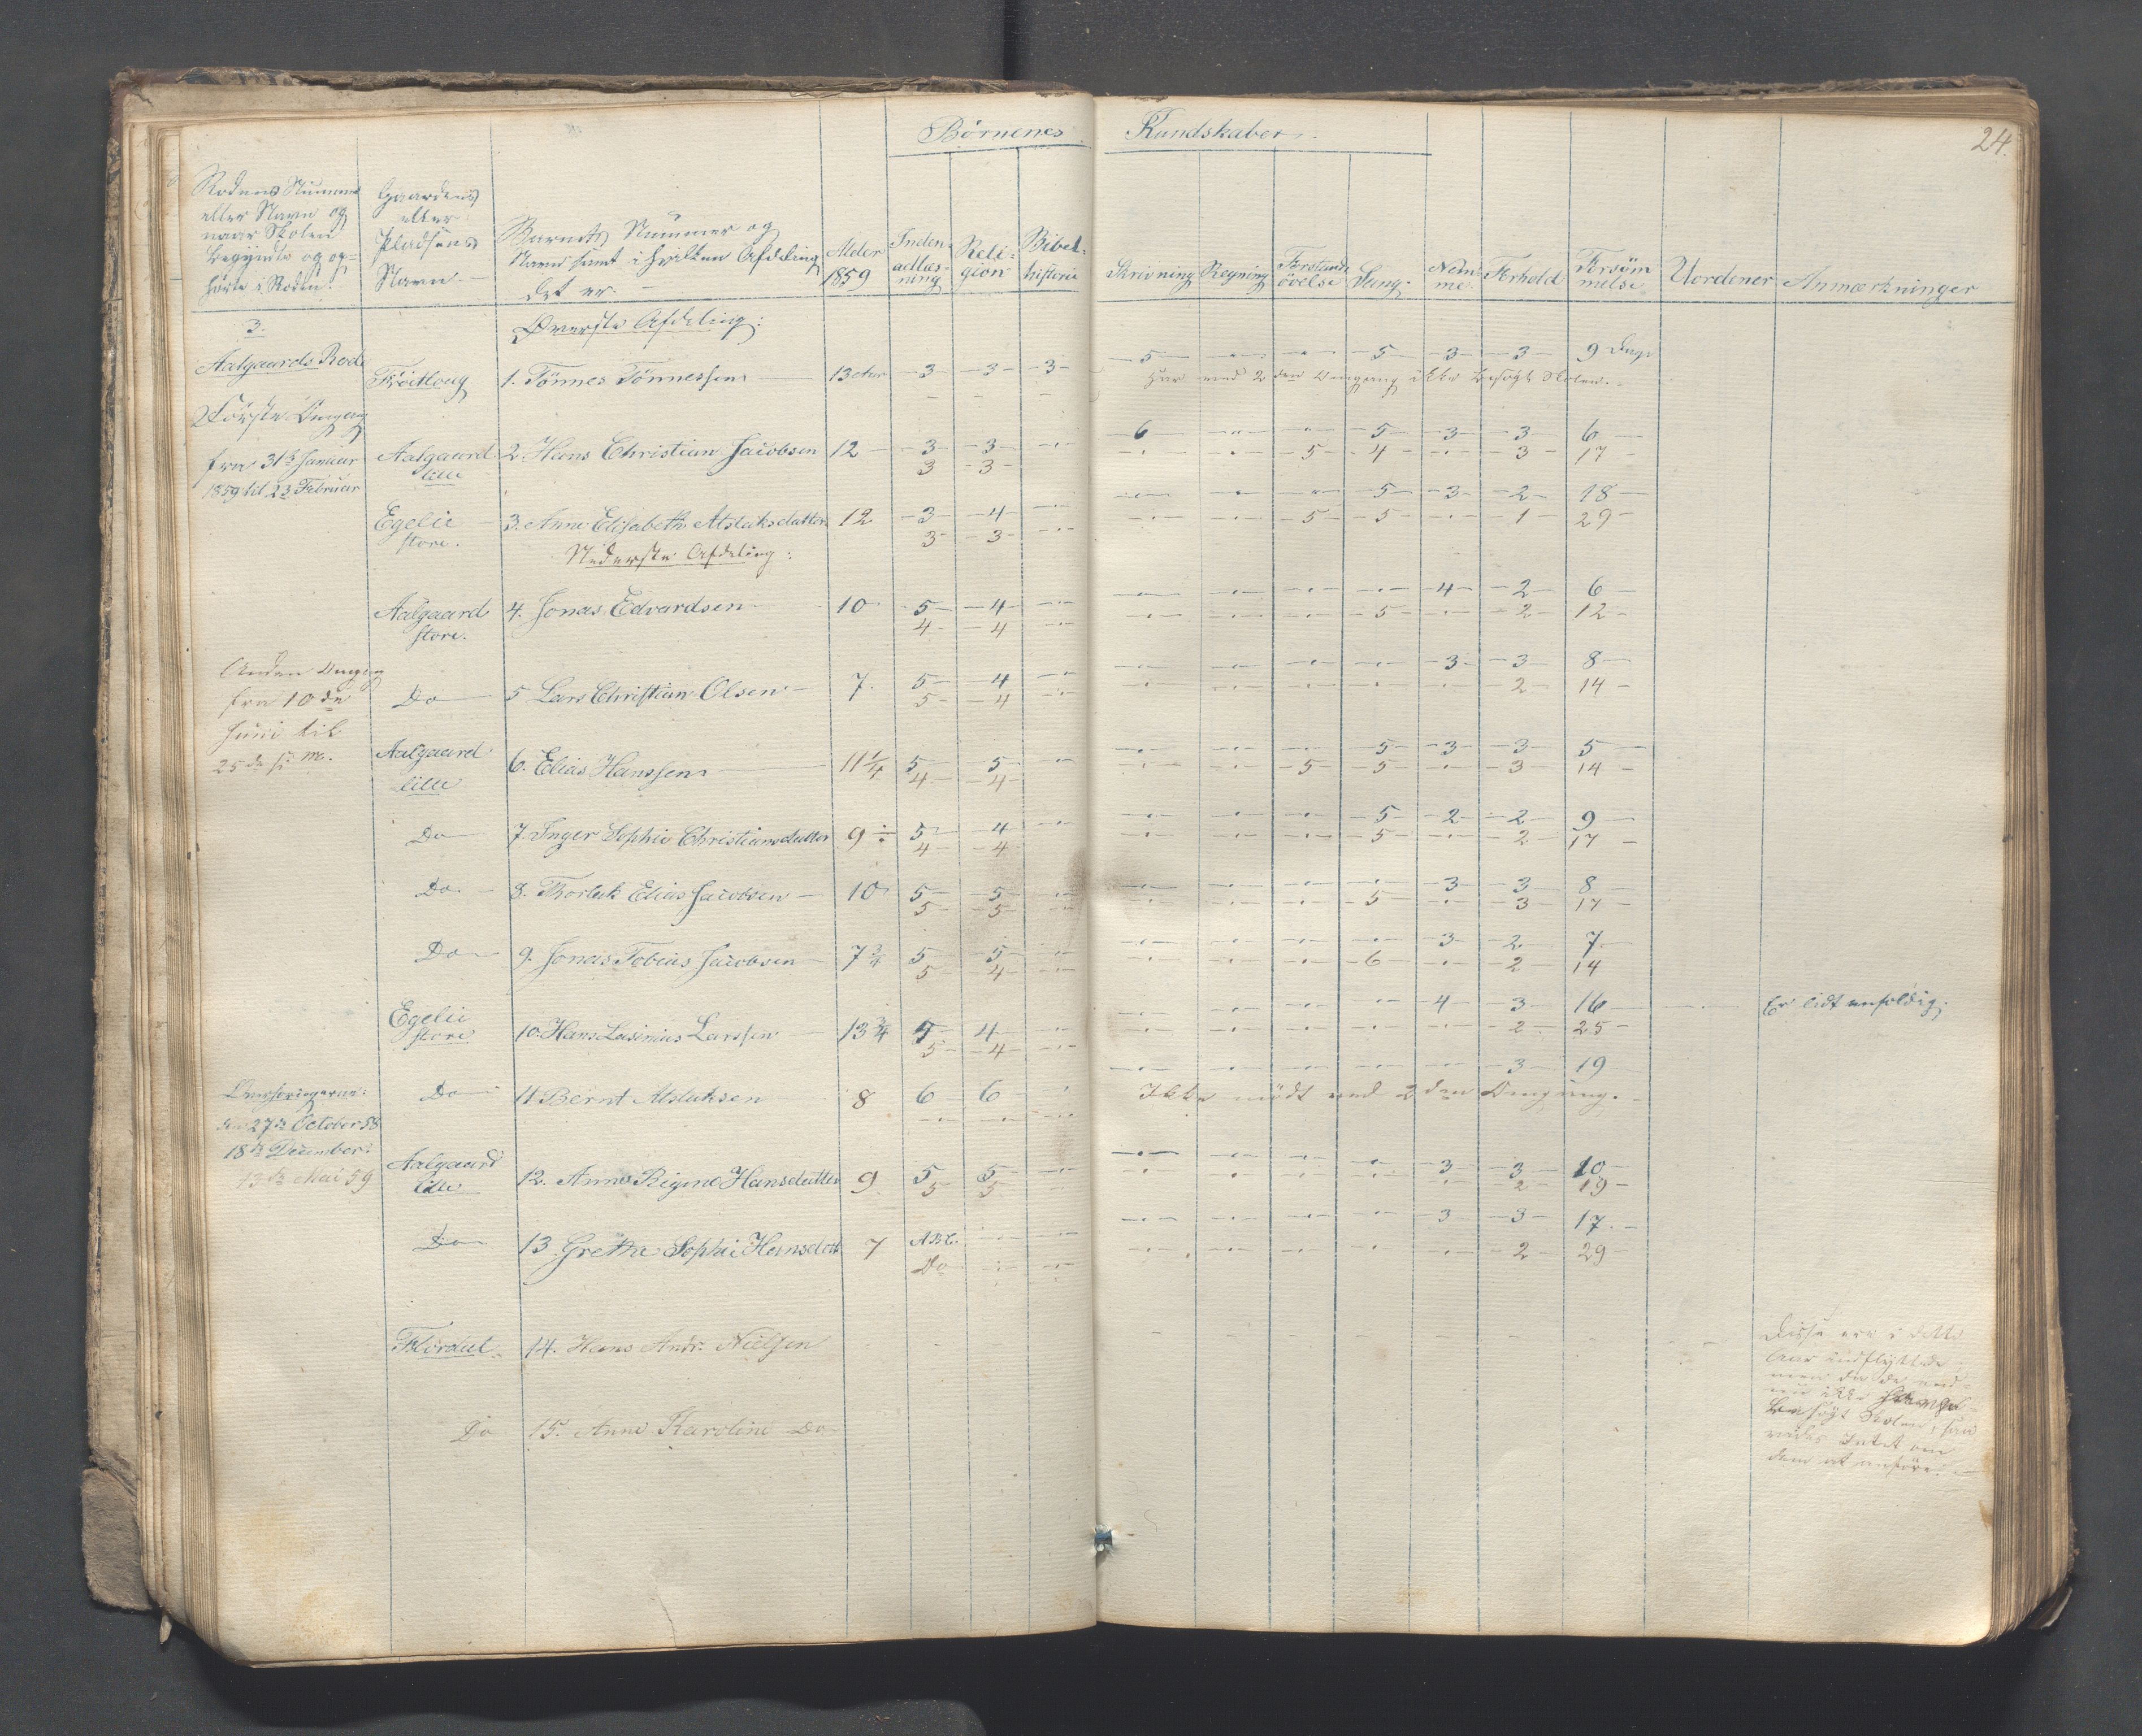 24.
Börnenes Kundskaber.
Rodens Nummer
eller Navn og
naar Skolen
begyndte og op-
hörte i Roden.
Gaardens
eller
Pladsens
Navn.
Barnets Nummer og
Navn samt i hvilken Afdeling
det er.
Alder
1859
Inden-
adlæs-
ning
Reli-
gion
Bibel-
historie
Skrivning
Regning
Forstands
övelse
Sang.
Nem-
me.
Forhold
Forsöm
melse
Uordener
Anmærkninger
3.
Aalgaards Rode
Øverste Afdeling:
Fröitlong 1. Tönnes Tönnessen 13 Aar -3- -3- -3- -5- -"- -"- -5- -3- -3- 9 Dage
Har ved 2den Omgang ikke besögt Skolen.
Förste Omgang
fra 31te Januar
1859 til 23 Februar
Aalgaard 2. Hans Christian Jacobsen 12 -3- -3- -"- -6- -"- -"- -5- -3- -3- 6
lille 3 -3- -"- -"- -5- -4- -"- -3- 17
Egelie 3. Anne Elisabeth Atslaksdatter 12 -3- -4- -"- -"- -"- -"- -5- -3- -2- 18
store. 3- -3- -"- -"- -"- -5- -5- -"- -1- 29
Nederste Afdeling:
Aalgaard 4. Jonas Edvardsen 10 5- -4- -"- -"- -"- -"- -"- -4- -2- 6
store. 4- -4 -"- -"- -"- -"- -5- -"- -2- 12
Anden Omgang
fra 10de
Juni til
25de s. m.
Do 5 Lars Christian Olsen 7. 5- -4 -"- -"- -"- -"- -"- -3- -3- 8
5- -4 -"- -"- -"- -"- -"- -"- -2- 14
Aalgaard 6. Elias Hanssen 11 1/4 5 5 -"- -"- -"- -"- -5- -3- -3- 5
lille 4- -4- -"- -"- -5- -5- -"- -3- 14
Do 7. Inger Sophie Christiansdatter 9 ÷ 5- 4 -"- -"- -"- -"- -5- -2- -2- 9
4- -4- -"- -"- -"- -5- -"- -2- 17
Do. 8. Torlak Elias Jacobsen 10 5- 5- -"- -"- -"- -"- -"- -3- -3- 8
5- -5- -"- -"- -"- -"- -5- -"- -3- 17
Do 9. Jonas Tobias Jacobsen 7 3/4 5 5 -"- -"- -"- -"- -"- -3- -2- 7
5- 4- -"- -"- -"- -"- -6- -"- -2- 14
Egelie 10. Hans Lasinius Larssen 13 3/4 5 4 -"- -"- -"- -"- -"- -4- -3- 16 Er lidt enfoldig.
store 5- -4- -"- -"- -"- -"- -"- -"- -2- 25
Do 11 Bernt Atslaksen 8 6 6 -"- -"- -"- -"- -"- -"- -3- 19
Ikke mödt ved 2den Omgang.
den 27de October 58
18de December
13de Mai 59
Aalgaard 12. Anne Rigine Hansdatter 9 5 5 -"- -"- -"- -"- -"- -3- -3- 10
lille 5 5 -"- -"- -"- -"- -"- -"- -2- 19
Do 13 Grethe Sophie Hansdatt 7 ABC. -"- -"- -"- -"- -"- -"- -3- -3- 17.
Do -"- -"- -"- -"- -"- -"- -"- -2- 29
Flördal 14. Hans Andr. Nielsen
Do 15. Anne Karoline Do
Disse ere i dette
Aar indflyttede
men da de end-
nu ikke
besögt Skolen, saa
vides Intet om
dem at anföre.